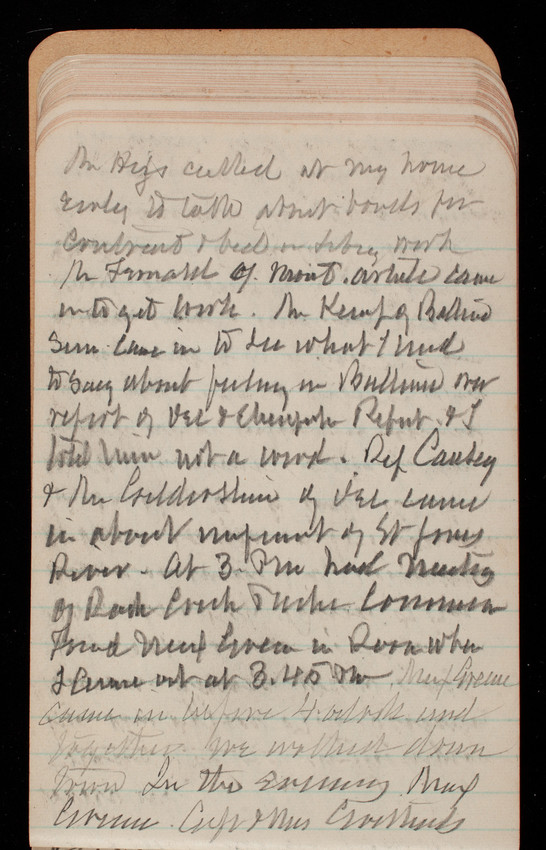 Mr called at my home
Early to talk about bonds for
Contract & bed work
Mr of Mont. came
in to get work. Mr Kemp of
Sun came in to see what I had
to say about feeling in over
report of Del & Chesapeke Report & I
told him not a word. Rep Causey
& Mr of Del came
in about of St Jones
River. At 3. PM had Meeting
of Rock Creek
found Maj Green in Room when
I came out at 3.45 PM Maj Greene
came in before 4 oclock and
together we walked down
Town In the Evening Maj
Greene. Capt & Mrs